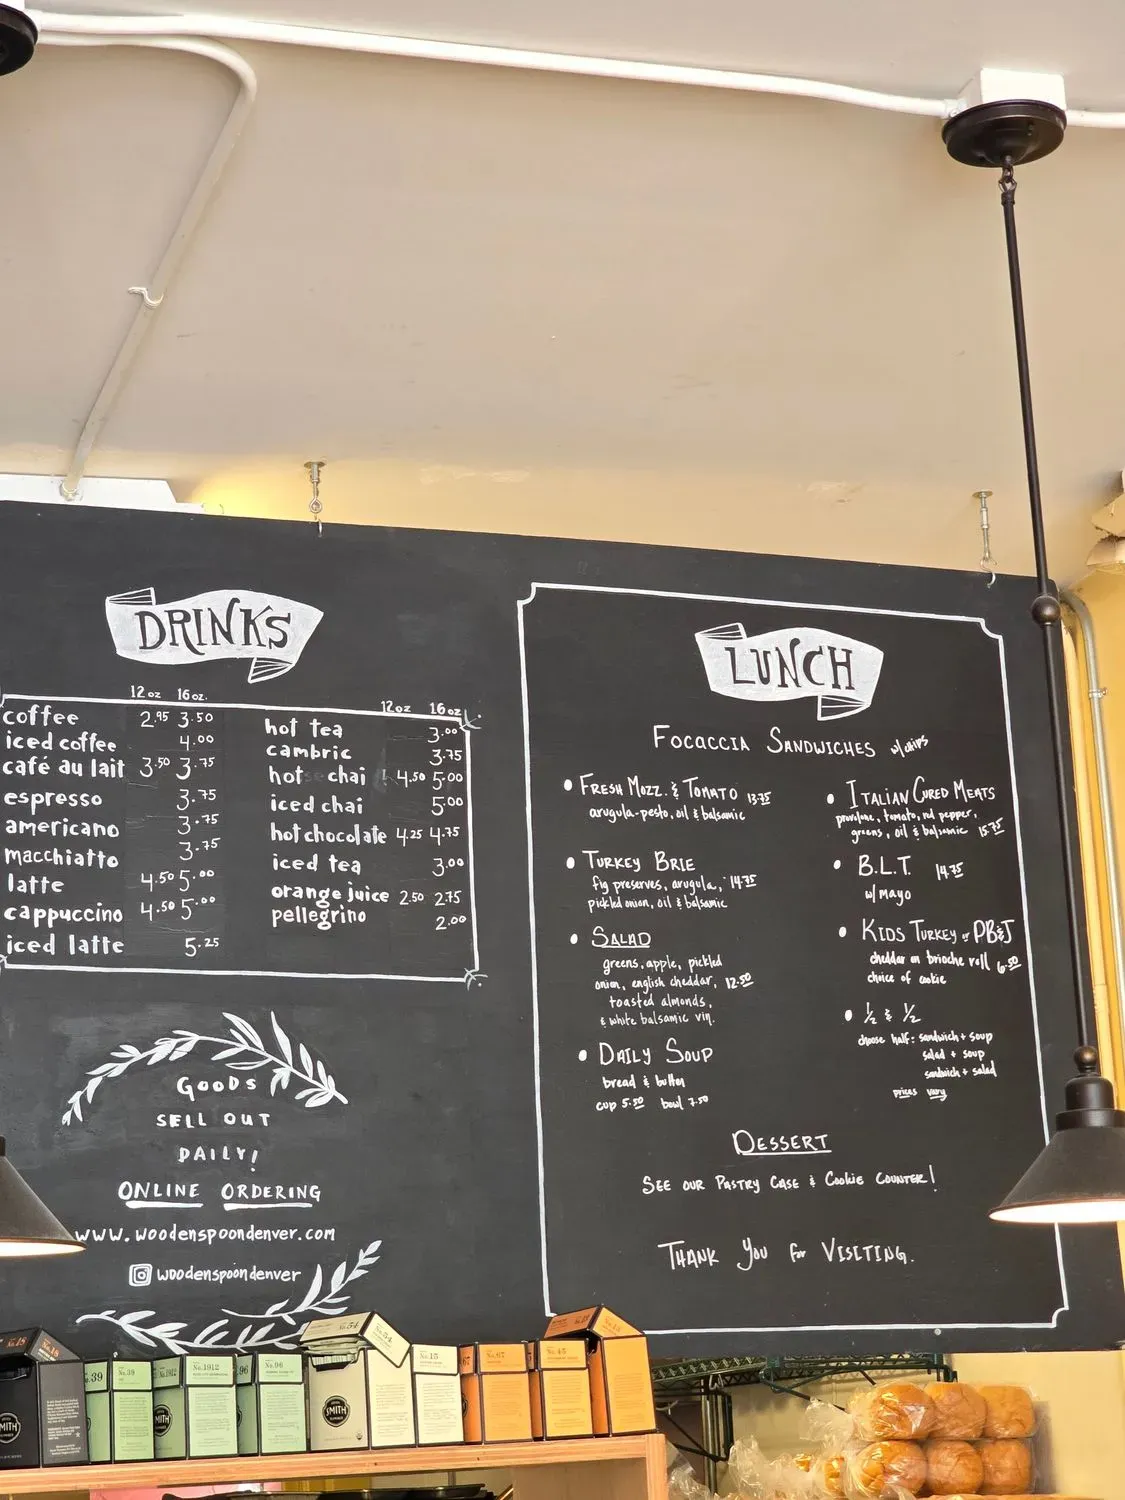 DRINKS
12 oz 16 oz.
coffee 2.95 3.50
iced coffee 4.00
café au lait 3.50 3.75
espresso 3.75
americano 3.75
macchiatto 3.75
latte 4.50 5.00
cappuccino 4.50 5.00
iced latte 5.25
12oz 16oz
hot tea 3.00
cambric 3.75
hot chai 4.50 5.00
iced chai 5.00
hot chocolate 4.25 4.75
iced tea 3.00
orange juice 2.50 2.75
pellegrino 2.00
GOODS
SELL OUT
DAILY!
ONLINE ORDERING
www.woodenspoondenver.com
woodenspoondenver
LUNCH
FOCACCIA SANDWICHES w/chips
• FRESH MOZZ. & TOMATO 13.75
arugula-pesto, oil & balsamic
• TURKEY BRIE
fig preserves, arugula, 14.75
pickled onion, oil & balsamic
• SALAD
greens, apple, pickled
onion, english cheddar, 12.50
toasted almonds,
& white balsamic vin.
• DAILY SOUP
bread & butter
cup 5.50 bowl 7.50
• ITALIAN CURED MEATS
provolone, tomato, red pepper,
greens, oil & balsamic 15.75
• B.L.T. 14.75
w/ mayo
• KIDS TURKEY or PB&J
cheddar on brioche roll 6.50
choice of cookie
• ½ & ½
choose half: sandwich + soup
salad + soup
sandwich + salad
prices vary
DESSERT
SEE OUR PASTRY CASE & COOKIE COUNTER!
THANK YOU for VISITING.
No.18
No.39
No.1912
No.96
No.54
No.15
No.67
No.45
SMITH
SMITH
SMITH